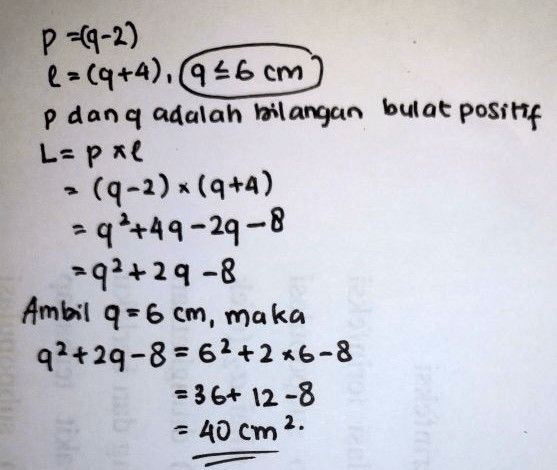 p = (q-2)
l = (q+4), q ≤ 6 cm
p dan q adalah bilangan bulat positif
L = p x l
= (q-2) x (q+4)
= q²+4q-2q-8
= q²+2q-8
Ambil q = 6 cm, maka
q²+2q-8 = 6²+2x6-8
= 36+12-8
= 40 cm².